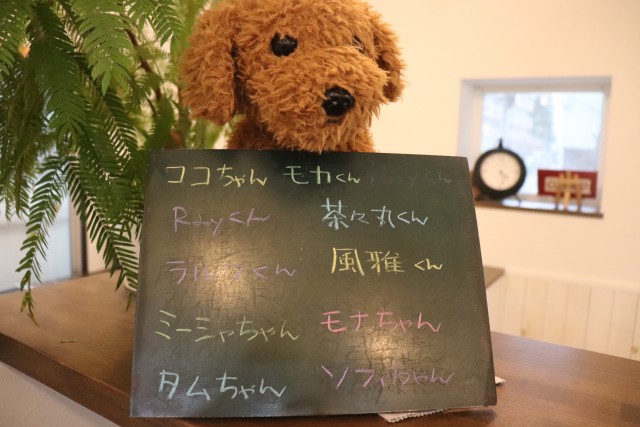 ココちゃん モカくん
Rayくん 茶々丸くん
くん 風雅くん
ミーシャちゃん モナちゃん
タムちゃん ソフィちゃん